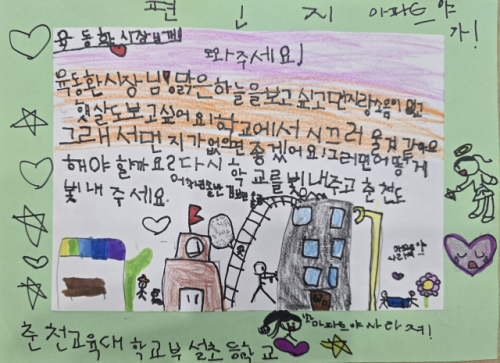 편 지
아파트야
가!
육동한시장님께!
도와주세요!
육동환시장님 맑은 하늘을 보고 싶고 먼지랑 소음이 없고
햇살도 보고 싶어요! 학교에서 시끄러
그래서 먼지가 없으면 좋겠어요! 그러면 어떻게
해야 할까요? 다시 학교를 빛내주고 춘천도
빛내 주세요.
아파트야 사라져!
춘천교육대학교부설초등학교